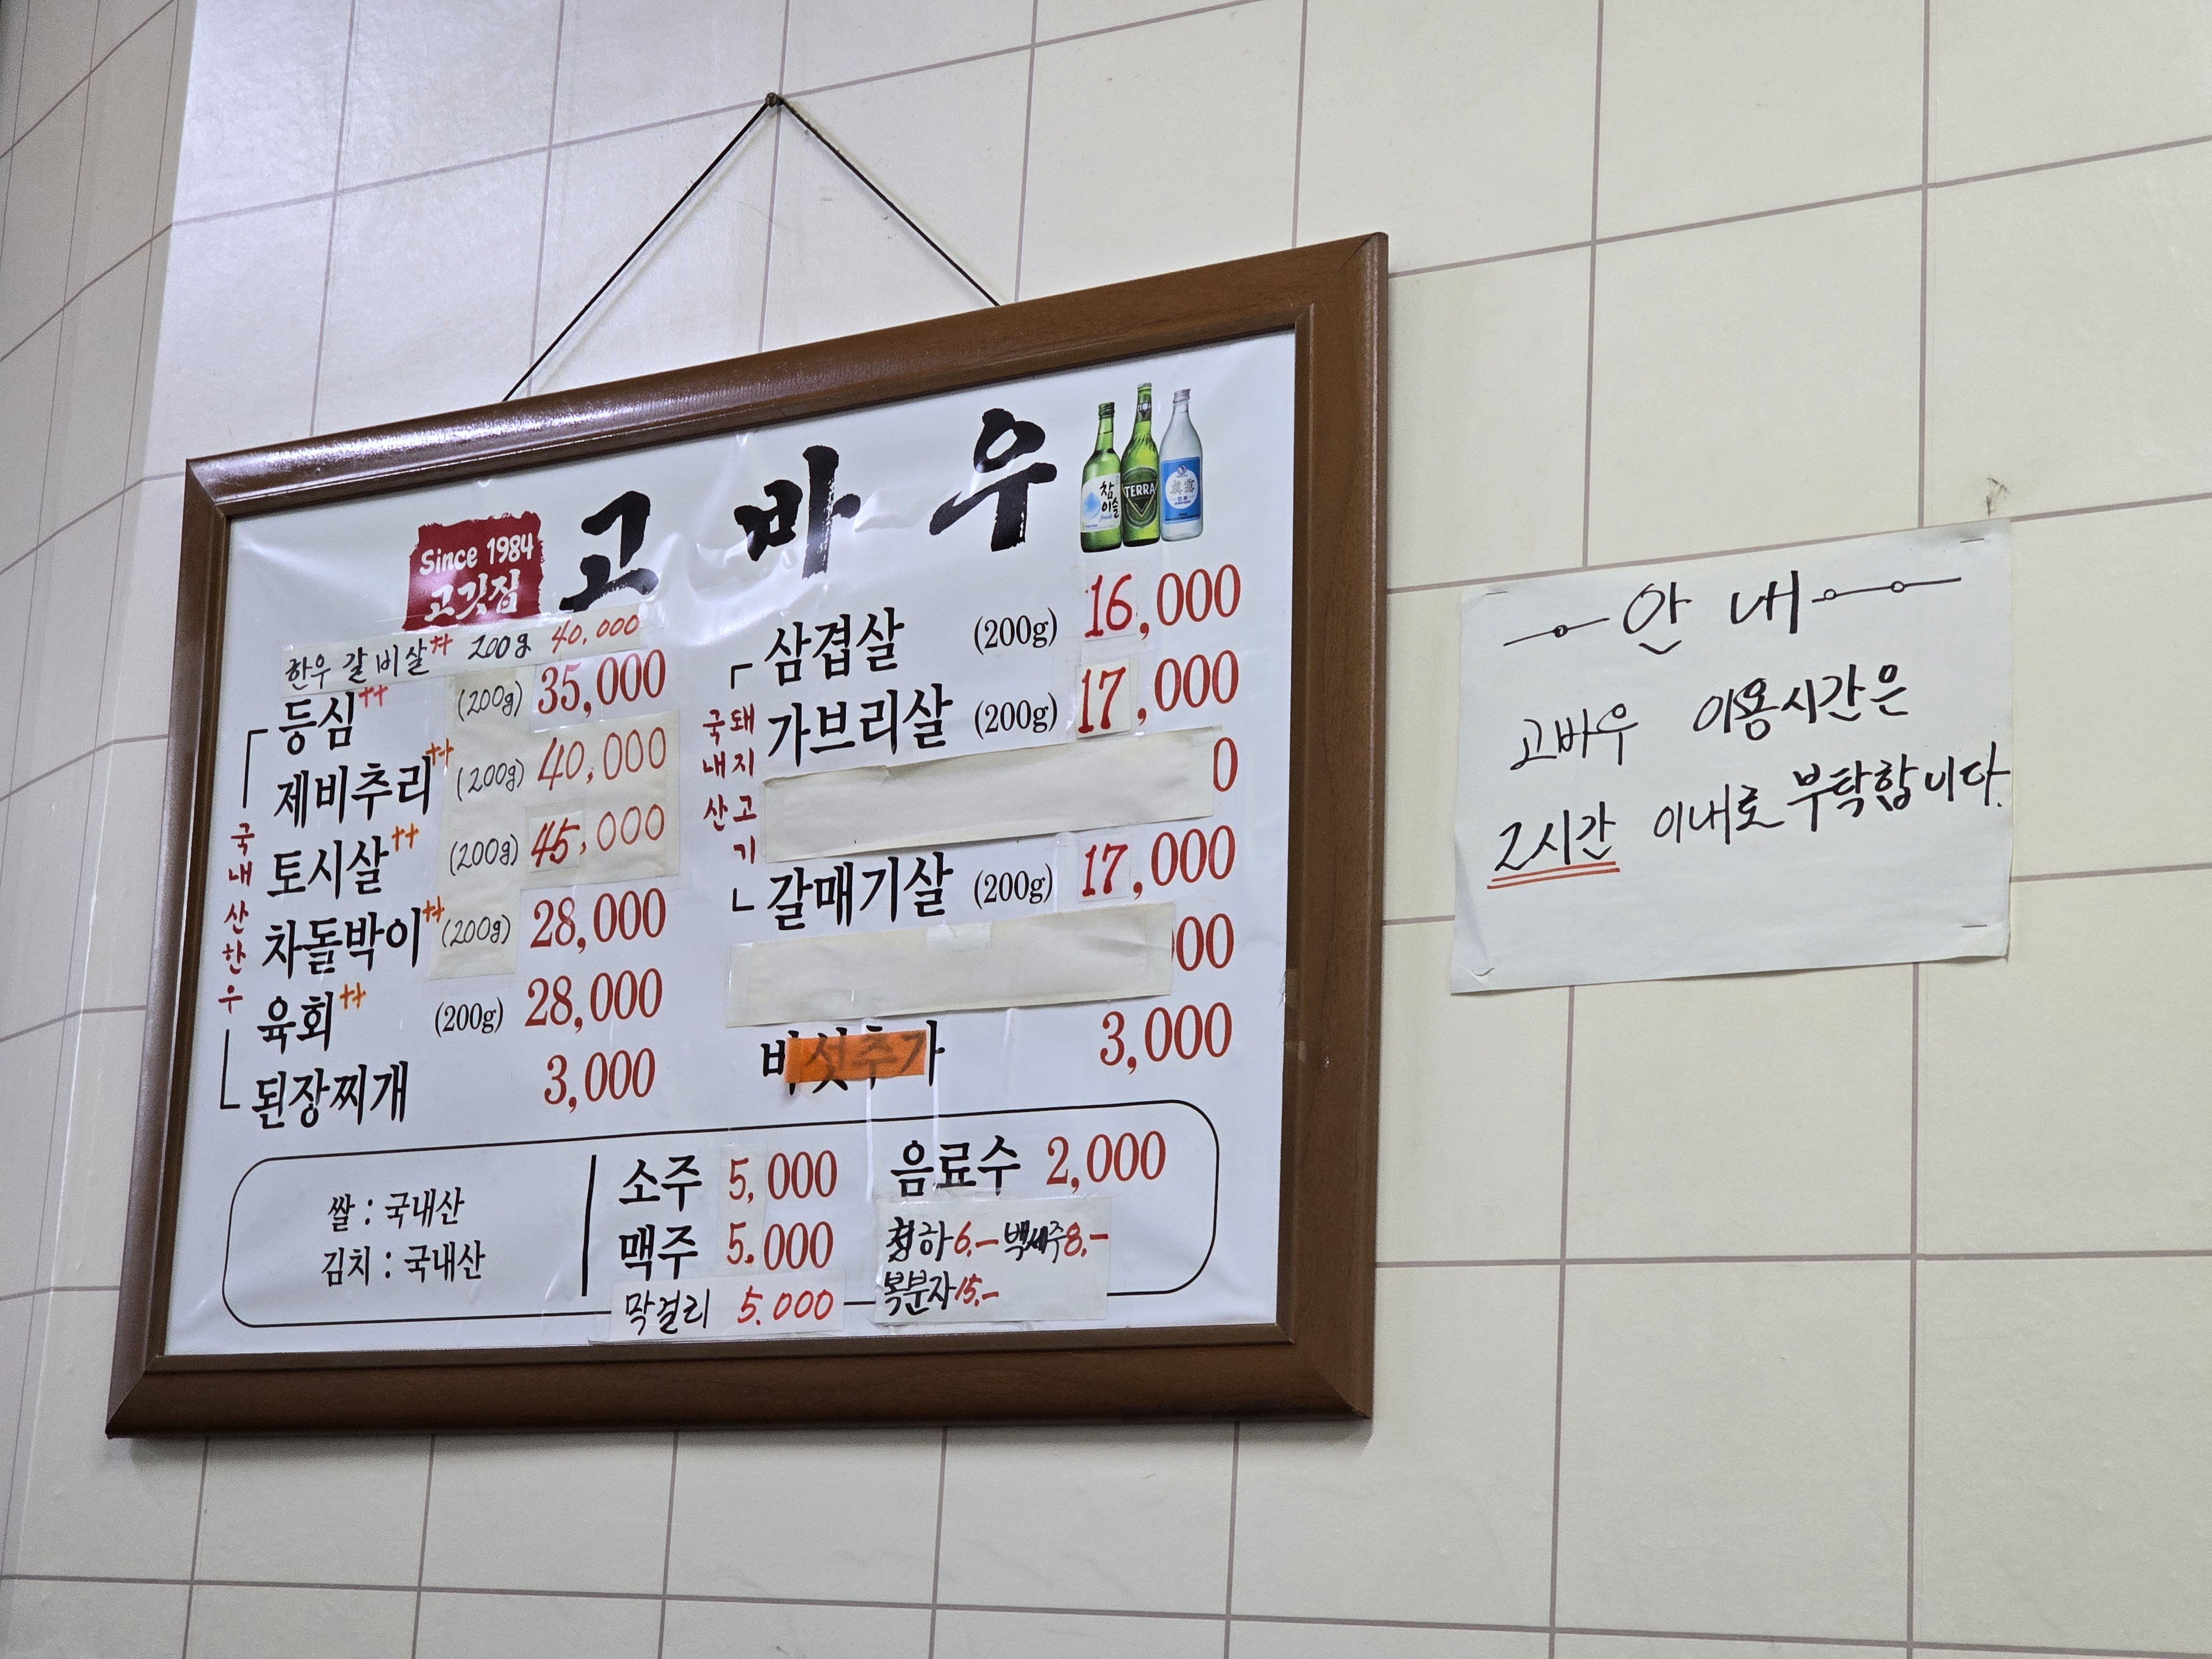 Since 1984
고깃집
고바우
참이슬
fresh
TERRA
한우 갈비살++ 200g 40,000
국내산한우
등심++ (200g) 35,000
제비추리++ (200g) 40,000
토시살++ (200g) 45,000
차돌박이++ (200g) 28,000
육회++ (200g) 28,000
된장찌개 3,000
국내산
돼지고기
삼겹살 (200g) 16,000
가브리살 (200g) 17,000
0
갈매기살 (200g) 17,000
00
버섯추가 3,000
쌀 : 국내산
김치 : 국내산
소주 5,000
맥주 5.000
막걸리 5.000
음료수 2,000
청하 6.- 백세주 8.-
복분자 15.-
안내
고바우 이용시간은
2시간 이내로 부탁합니다.